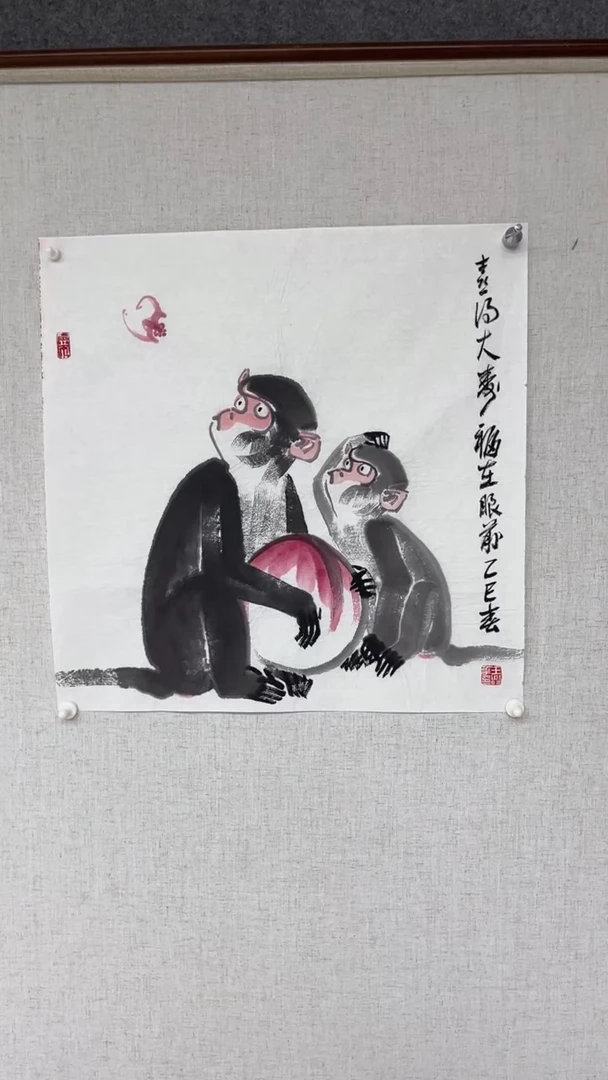 喜得大寿福在眼前乙巳春